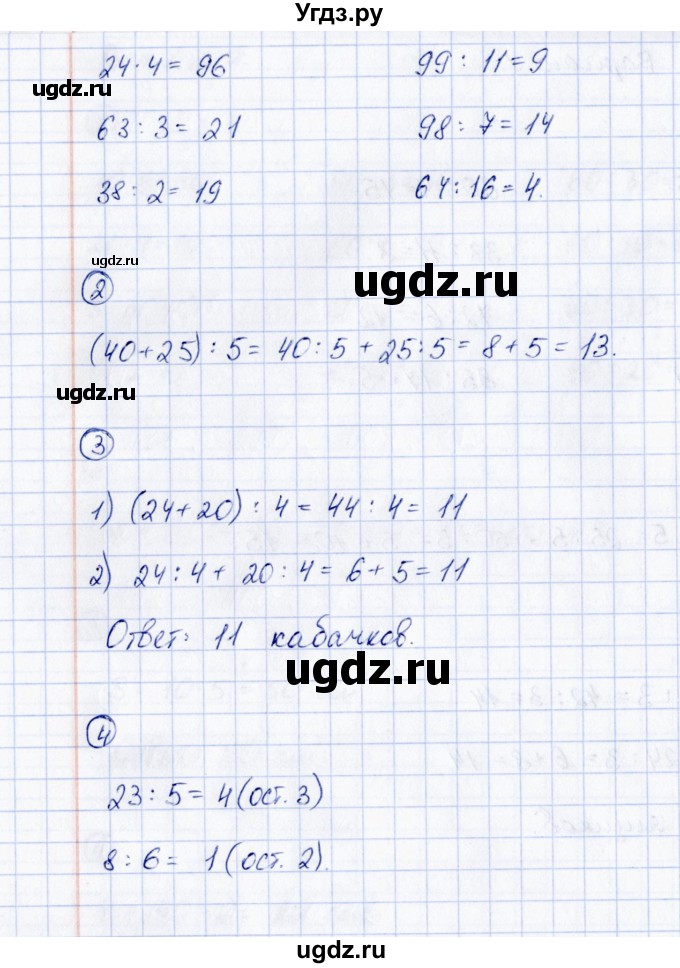 Угдз.ру
24 · 4 = 96 99 : 11 = 9
ugdz.ru
63 : 3 = 21 98 : 7 = 14
38 : 2 = 19 64 : 16 = 4.
ugdz.ru
ugdz.ru
2
(40+25) : 5 = 40 : 5 + 25 : 5 = 8 + 5 = 13.
ugdz.ru
3
1) (24+20) : 4 = 44 : 4 = 11
2) 24 : 4 + 20 : 4 = 6 + 5 = 11
Ответ: 11 кабачков.
ugdz.ru
4
23 : 5 = 4 (ост. 3)
8 : 6 = 1 (ост. 2).
ugdz.ru